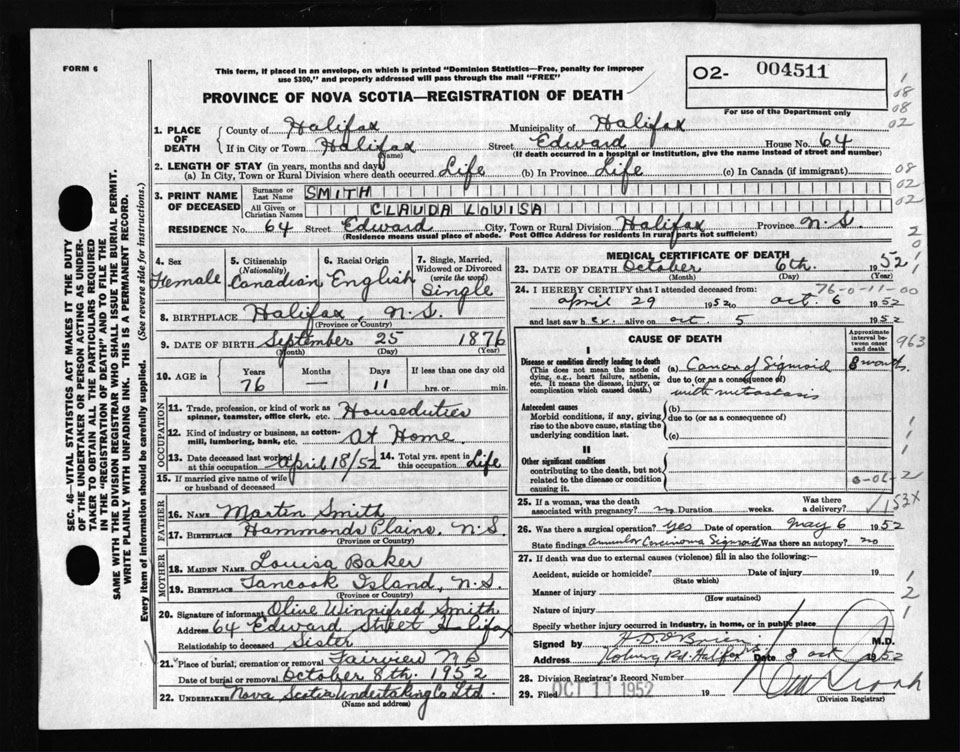 FORM 6
This form, if placed in an envelope, on which is printed "Dominion Statistics—Free, penalty for improper
use $300," and properly addressed will pass through the mail "FREE"
O2- 004511
For use of the Department only
PROVINCE OF NOVA SCOTIA—REGISTRATION OF DEATH
1. PLACE OF DEATH
County of Halifax Municipality of Halifax
If in City or Town Halifax Street Edward House No. 64
(Name) (If death occurred in a hospital or institution, give the name instead of street and number)
2. LENGTH OF STAY (in years, months and days)
(a) In City, Town or Rural Division where death occurred Life (b) In Province Life (c) In Canada (if immigrant)
3. PRINT NAME OF DECEASED
Surname or Last Name SMITH
All Given or Christian Names CLAUDA LOUISA
RESIDENCE No. 64 Street Edward City, Town or Rural Division Halifax Province N.S.
(Residence means usual place of abode. Post Office Address for residents in rural parts not sufficient)
SEC. 46—VITAL STATISTICS ACT MAKES IT THE DUTY
OF THE UNDERTAKER OR PERSON ACTING AS UNDER-
TAKER TO OBTAIN ALL THE PARTICULARS REQUIRED
IN THE "REGISTRATION OF DEATH" AND TO FILE THE
SAME WITH THE DIVISION REGISTRAR WHO SHALL ISSUE THE BURIAL PERMIT.
WRITE PLAINLY WITH UNFADING INK. THIS IS A PERMANENT RECORD.
Every item of information should be carefully supplied. (See reverse side for instructions.)
4. Sex Female
5. Citizenship (Nationality) Canadian
6. Racial Origin English
7. Single, Married, Widowed or Divorced (write the word) Single
8. BIRTHPLACE Halifax, N.S.
(Province or Country)
9. DATE OF BIRTH September 25 1876
(Month) (Day) (Year)
10. AGE in Years 76 Months — Days 11 If less than one day old hrs. or min.
OCCUPATION
11. Trade, profession, or kind of work as spinner, teamster, office clerk, etc. Houseduties
12. Kind of industry or business, as cotton-mill, lumbering, bank, etc. At Home.
13. Date deceased last worked at this occupation April 18/52 14. Total yrs. spent in this occupation Life
15. If married give name of wife or husband of deceased
FATHER
16. NAME Martin Smith
17. BIRTHPLACE Hammonds Plains, N.S.
(Province or Country)
MOTHER
18. MAIDEN NAME Louisa Baker
19. BIRTHPLACE Tancook Island, N.S.
(Province or Country)
20. Signature of informant Olive Winnifred Smith
Address 64 Edward Street Halifax
Relationship to deceased Sister
21. Place of burial, cremation or removal Fairview N.S
Date of burial or removal October 8th. 1952
22. UNDERTAKER Nova Scotia Undertaking Co Ltd.
(Name and address)
MEDICAL CERTIFICATE OF DEATH
23. DATE OF DEATH October 6th. 1952
(Month) (Day) (Year)
24. I HEREBY CERTIFY that I attended deceased from: 76-0-11-00
april 29 1952 to oct. 6 1952
and last saw her alive on oct. 5 1952
CAUSE OF DEATH
Approximate interval between onset and death
I
Disease or condition directly leading to death
(This does not mean the mode of dying, e.g., heart failure, asthenia, etc. It means the disease, injury, or complication which caused death.)
(a) Cancer of Sigmoid 8 months
due to (or as a consequence of)
with metastasis
Antecedent causes
Morbid conditions, if any, giving rise to the above cause, stating the underlying condition last.
(b)
due to (or as a consequence of)
(c)
II
Other significant conditions
contributing to the death, but not related to the disease or condition causing it.
25. If a woman, was the death associated with pregnancy? no Duration weeks. Was there a delivery? 153X
26. Was there a surgical operation? yes Date of operation May 6 1952
State findings Annular Carcinoma Sigmoid Was there an autopsy? no
27. If death was due to external causes (violence) fill in also the following:
Accident, suicide or homicide? Date of injury 19
(State which)
Manner of injury
(How sustained)
Nature of injury
Specify whether injury occurred in industry, in home, or in public place
Signed by H.D. O'Brien M.D.
Address Coburg Rd. Halifax Date 8 oct 1952
28. Division Registrar's Record Number
29. Filed OCT 11 1952 19
(Division Registrar)